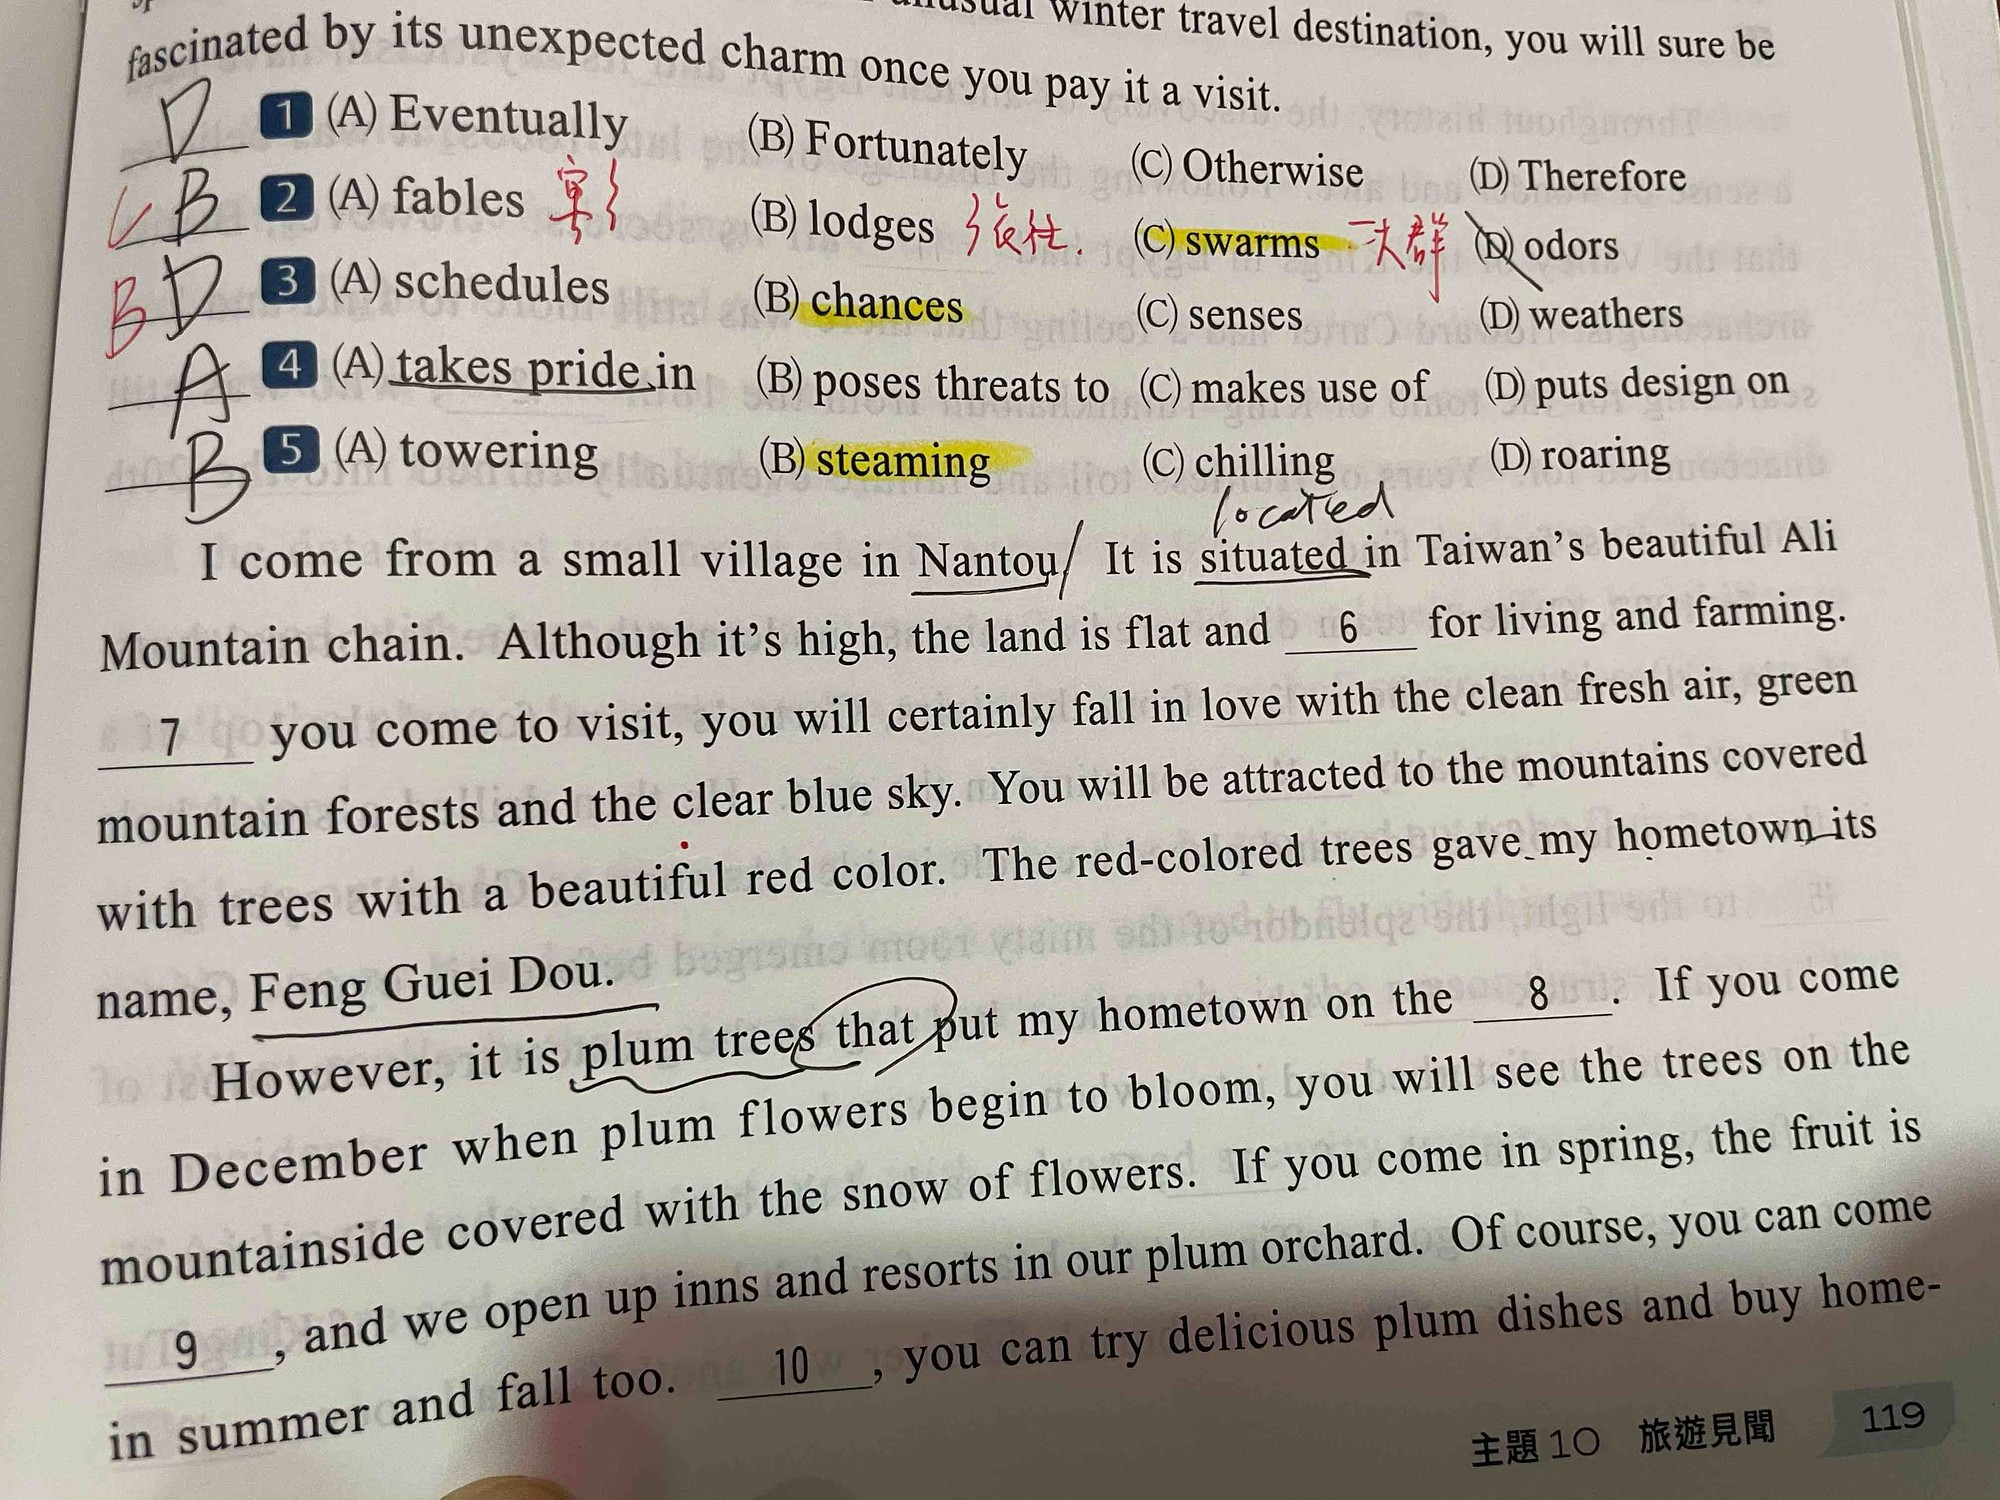 unusual winter travel destination, you will sure be
fascinated by its unexpected charm once you pay it a visit.
D 1 (A) Eventually (B) Fortunately (C) Otherwise (D) Therefore
C B 2 (A) fables 寓言 (B) lodges (C) swarms 一大群 (D) odors
B D 3 (A) schedules (B) chances (C) senses (D) weathers
A 4 (A) takes pride in (B) poses threats to (C) makes use of (D) puts design on
B 5 (A) towering (B) steaming (C) chilling (D) roaring
located
I come from a small village in Nantou/ It is situated in Taiwan's beautiful Ali
Mountain chain. Although it's high, the land is flat and 6 for living and farming.
7 you come to visit, you will certainly fall in love with the clean fresh air, green
mountain forests and the clear blue sky. You will be attracted to the mountains covered
with trees with a beautiful red color. The red-colored trees gave my hometown its
name, Feng Guei Dou.
However, it is plum trees that put my hometown on the 8 . If you come
in December when plum flowers begin to bloom, you will see the trees on the
mountainside covered with the snow of flowers. If you come in spring, the fruit is
9 , and we open up inns and resorts in our plum orchard. Of course, you can come
in summer and fall too. 10 , you can try delicious plum dishes and buy home-
主題10 旅遊見聞 119